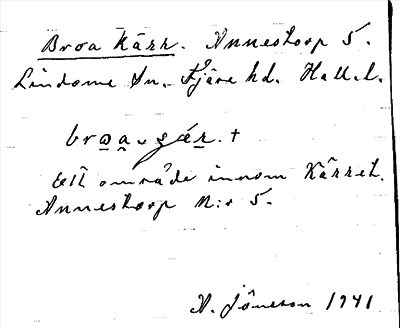 Broa Kärr. Annestorp 5.
Lindome Sn. Fjäre hd. Hall. l.
Ett område innom Kärret.
Annestorp N:o 5.
A. Jönsson 1941